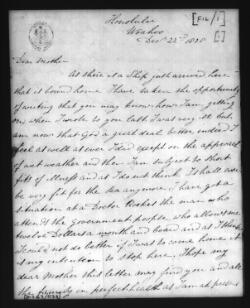 Honolulu
Woahoo
Decr 22nd 18
[F16/1]
Dear Mother
As there is a Ship just arrived here
that is bound home I have taken the opportunity
of writing that you may know how I am getting
on, when I wrote to you last I was very ill but
am now thank God a great deal better indeed I
feel as well as ever I did except on the approach
of wet weather and then I am subject to short
fits of illness and as I do not think I shall ever
be very fit for the sea anymore I have got a
situation at a Doctor the man who
attends the Government people, who allows me
twelve Dollars a month and board and as I think
I should not do better if I was to come home it
is my intention to stop here, I hope my
dear Mother that letter may find you and all
the family in perfect health as I am at present